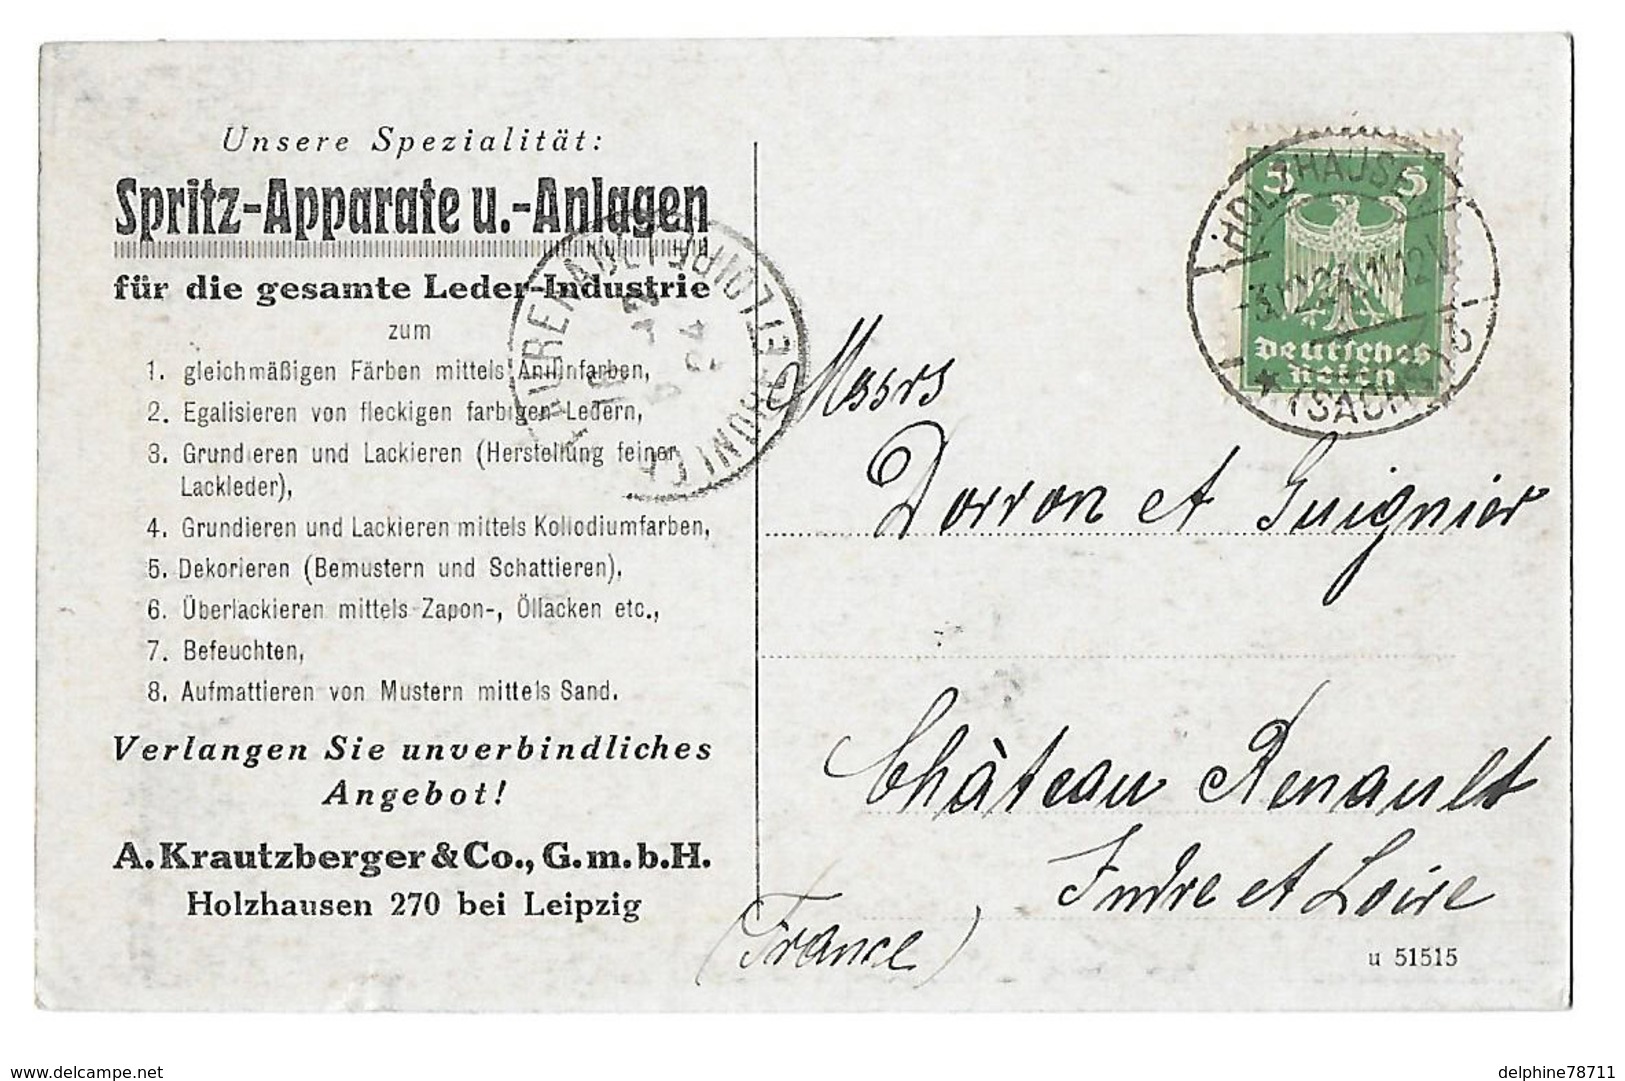 Unsere Spezialität:
Spritz-Apparate u.-Anlagen
für die gesamte Leder-Industrie
zum
1. gleichmäßigen Färben mittels Anilinfarben,
2. Egalisieren von fleckigen farbigen Ledern,
3. Grundieren und Lackieren (Herstellung feiner
Lackleder),
4. Grundieren und Lackieren mittels Kollodiumfarben,
5. Dekorieren (Bemustern und Schattieren),
6. Überlackieren mittels Zapon-, Öllacken etc.,
7. Befeuchten,
8. Aufmattieren von Mustern mittels Sand.
Verlangen Sie unverbindliches
Angebot!
A. Krautzberger & Co., G.m.b.H.
Holzhausen 270 bei Leipzig
INDRE ET LOIRE
5 5
HOLZHAUSEN
Deutsches
Reich
(SACHS)
Messrs
Dorron et Guignier
Château Renault
Indre et Loire
(France)
u 51515
www.delcampe.net
delphine78711